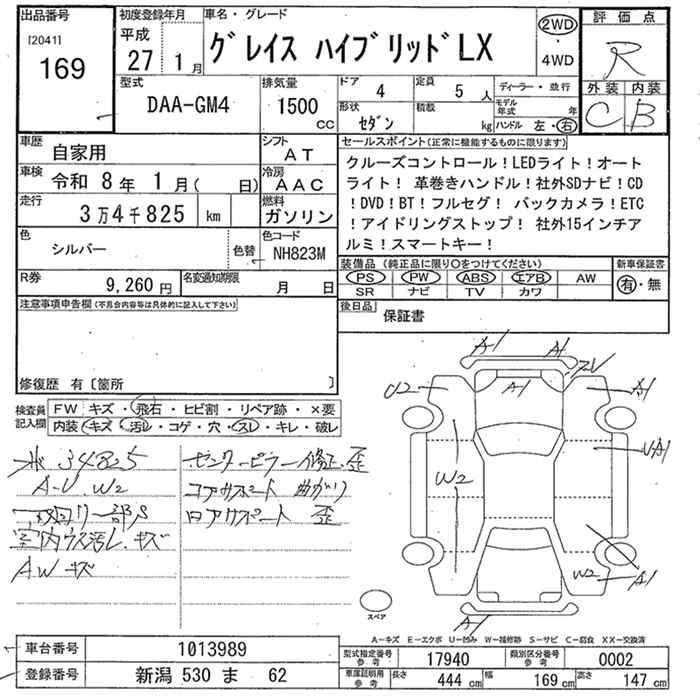 出品番号
[2041]
169
初度登録年月
平成
27 1月
車名・グレード
グレイス ハイブリッド LX
2WD
・
4WD
評価点
R
外装 内装
C B
型式
DAA-GM4
排気量
1500
CC
ドア 4
定員 5 人
形状 セダン
積載 kg
ディーラー・並行
モデル年式 年
ハンドル 左・右
車歴
自家用
シフト
AT
車検
令和 8年 1月( 日)
冷房
AAC
走行
3万4千825 km
燃料
ガソリン
色
シルバー
色替
色コード
NH823M
R券
9,260 円
名変通知期限
月 日
セールスポイント(正常に機能するものに限ります)
クルーズコントロール!LEDライト!オート
ライト! 革巻きハンドル!社外SDナビ!CD
!DVD!BT!フルセグ! バックカメラ!ETC
!アイドリングストップ! 社外15インチア
ルミ!スマートキー!
装備品(純正品に限り○をつけてください)
PS PW ABS エアB AW
SR ナビ TV カワ
新車保証書
有・無
後日品
保証書
注意事項申告欄(不具合内容等は具体的に記入して下さい)
修復歴 有〔箇所 〕
検査員
記入欄
FW キズ・飛石・ヒビ割・リペア跡・×要
内装 キズ・汚レ・コゲ・穴・スレ・キレ・破レ
34825
A-U.W2
室内ウス汚レ.キズ
AWキズ
センターピラー修正.歪
コアサポート 曲がり
ロアサポート 歪
A1
A1
A1
U2
A1
W2
UA1
W2
A1
A1
スペア
A-キズ E-エクボ U-凹み W-補修跡 S-サビ C-腐食 XX-交換済
車台番号
1013989
登録番号
新潟 530 ま 62
型式指定番号
参考
17940
類別区分番号
参考
0002
車庫証明用
参考
長さ 444 cm
幅 169 cm
高さ 147 cm